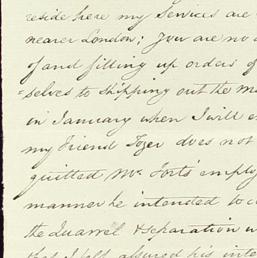 reside here my Services are
nearer London; You are no
of and fitting up orders of
selves to shipping out the m
in January when I will e
my Friend Tozer does not
quitted Mr. Forts' employ
manner he intended to c
the Quarrel & separation w
that I felt assured his inte